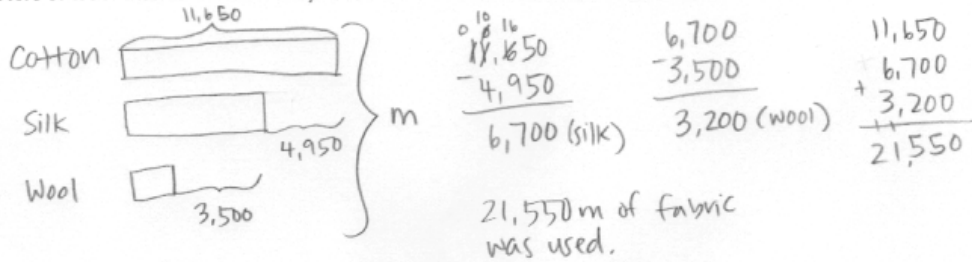 11,650
Cotton
Silk
4,950
Wool
3,500
m
0 10 16
11,650
-4,950
6,700 (silk)
6,700
-3,500
3,200 (wool)
11,650
6,700
+ 3,200
21,550
21,550 m of fabric
was used.